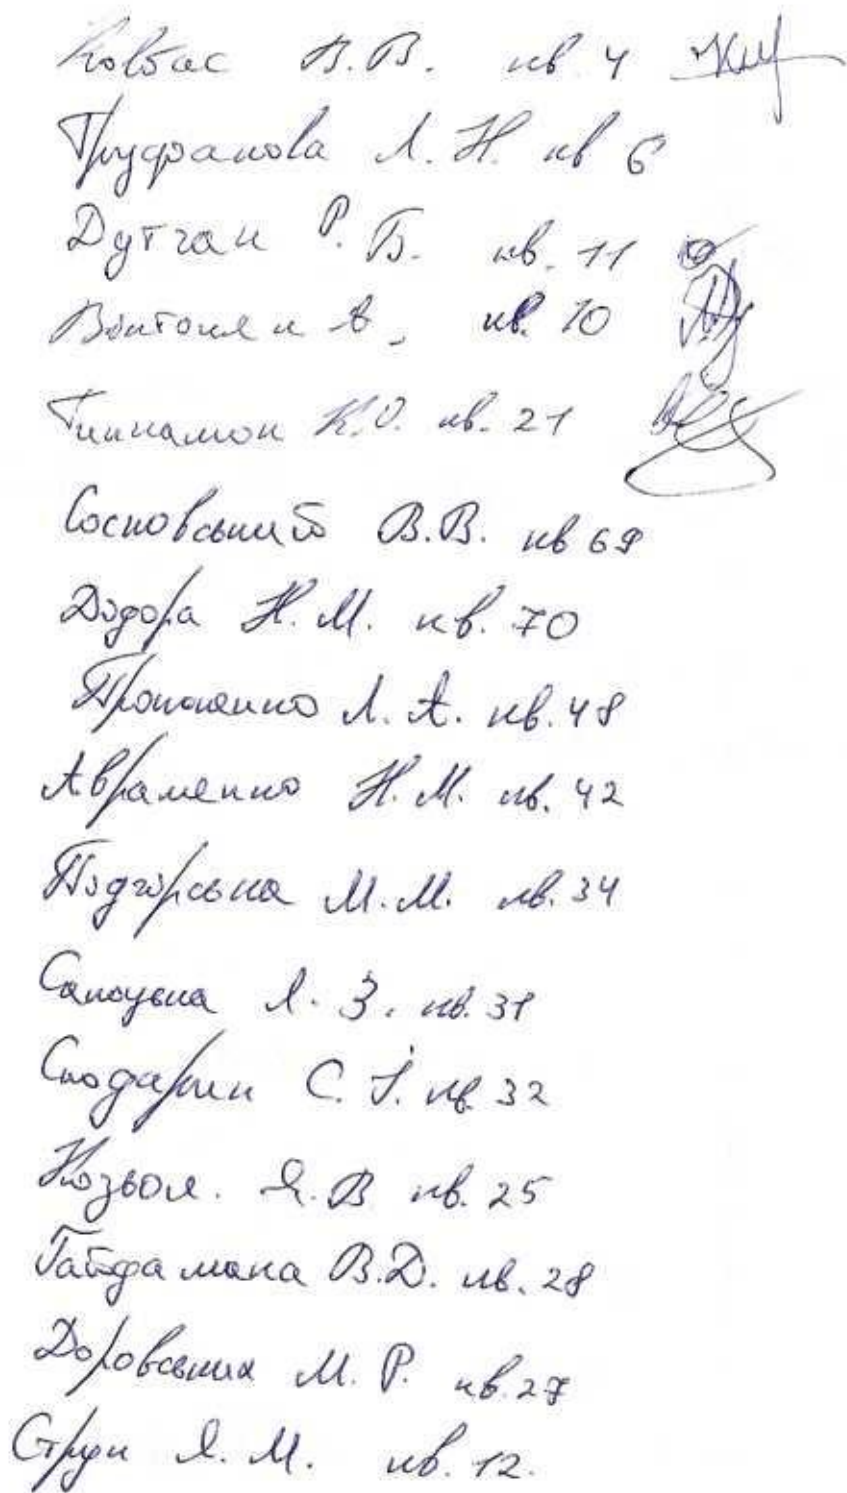 Ковбас В.В. кв 4
Труфанова Л. Н. кв 6
Дутчак Р. Б. кв. 11
А. кв. 10
К.О. кв. 21
Сосновський В.В. кв 69
Дідора Н. М. кв. 70
Прокопенко Л. А. кв. 48
Авраменко Н. М. кв. 42
Підгірська М. М. кв. 34
Л. З. кв. 31
Сподарик С. І. кв. 32
Козьол. Я. В кв. 25
Гайдамака В.Д. кв. 28
Доровських М. Р. кв. 27
Струк Я. М. кв. 12.